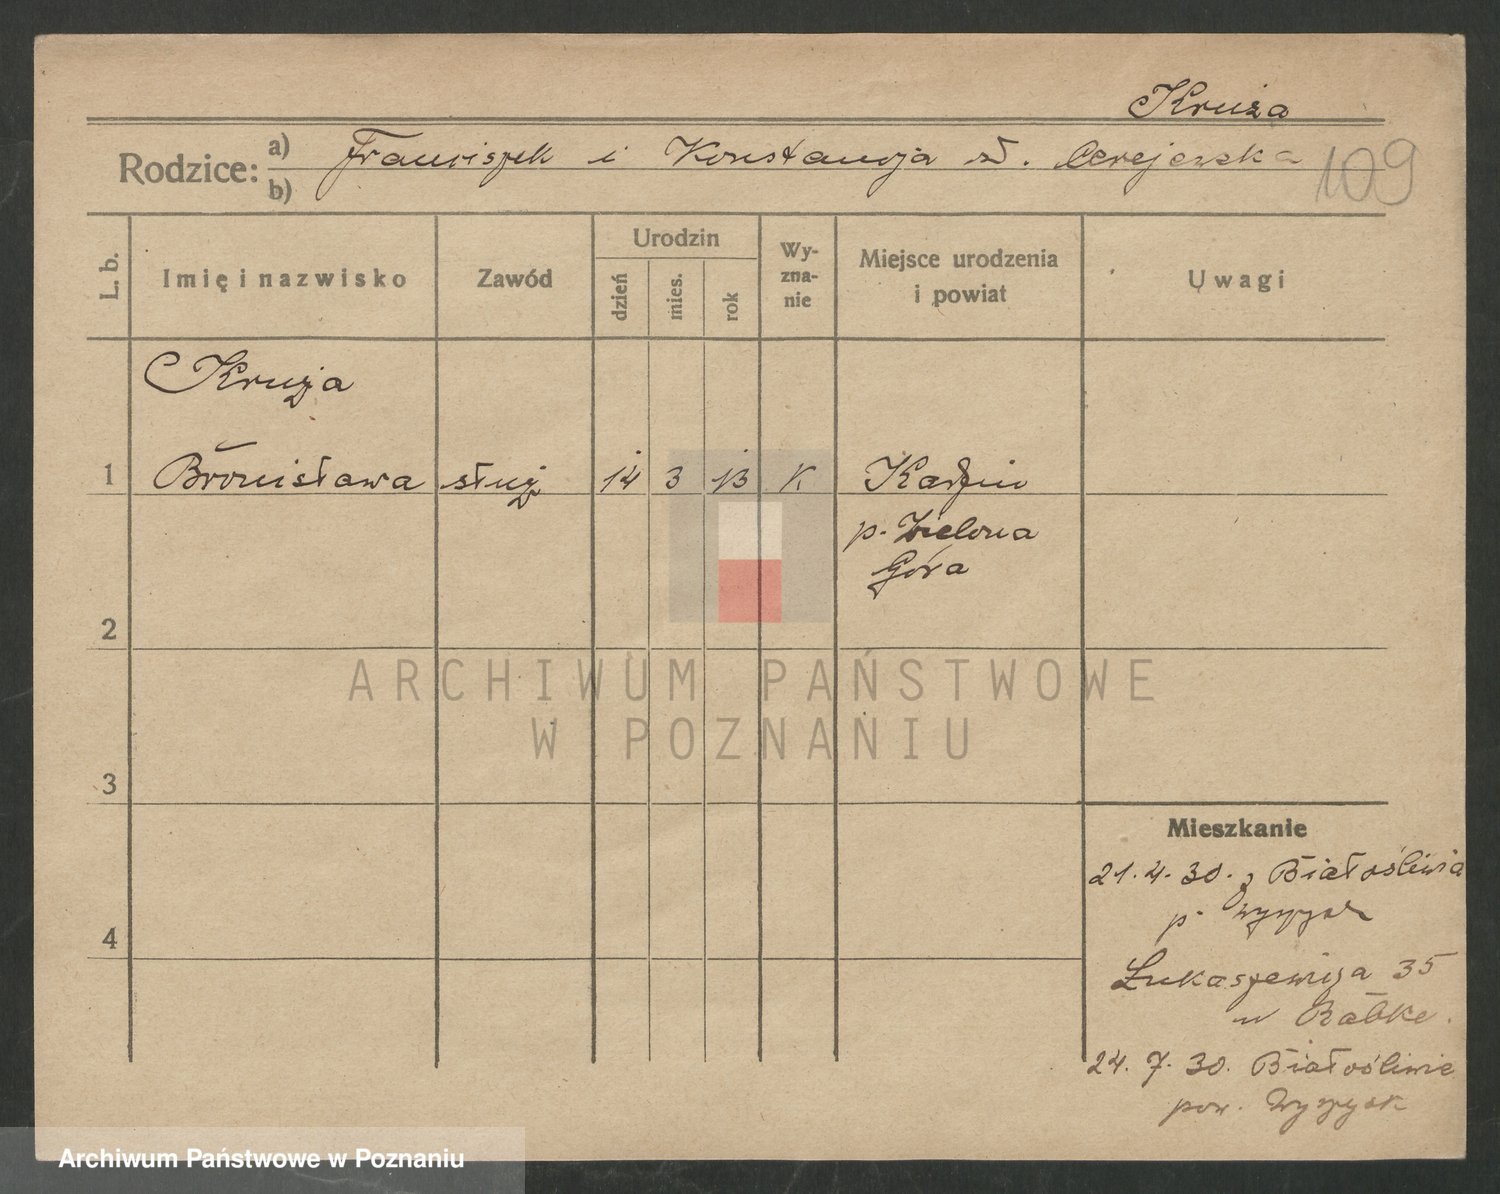 Kruża
Rodzice: a) Franciszek i Konstancja d. Cerejewska 109
b)
L. b. Imię i nazwisko Zawód Urodzin dzień mies. rok Wy-zna-nie Miejsce urodzenia i powiat Uwagi
Kruża
1 Bronisława służ 14 3 13 K
p. Zielona
Góra
2
3
Mieszkanie
21.4.30. z Białośliwia
p. Wyrzysk
4
Łukaszewicza 35
u
24. 7. 30. Białośliwie
pow. Wyrzysk
ARCHIWUM PAŃSTWOWE
W POZNANIU
Archiwum Państwowe w Poznaniu